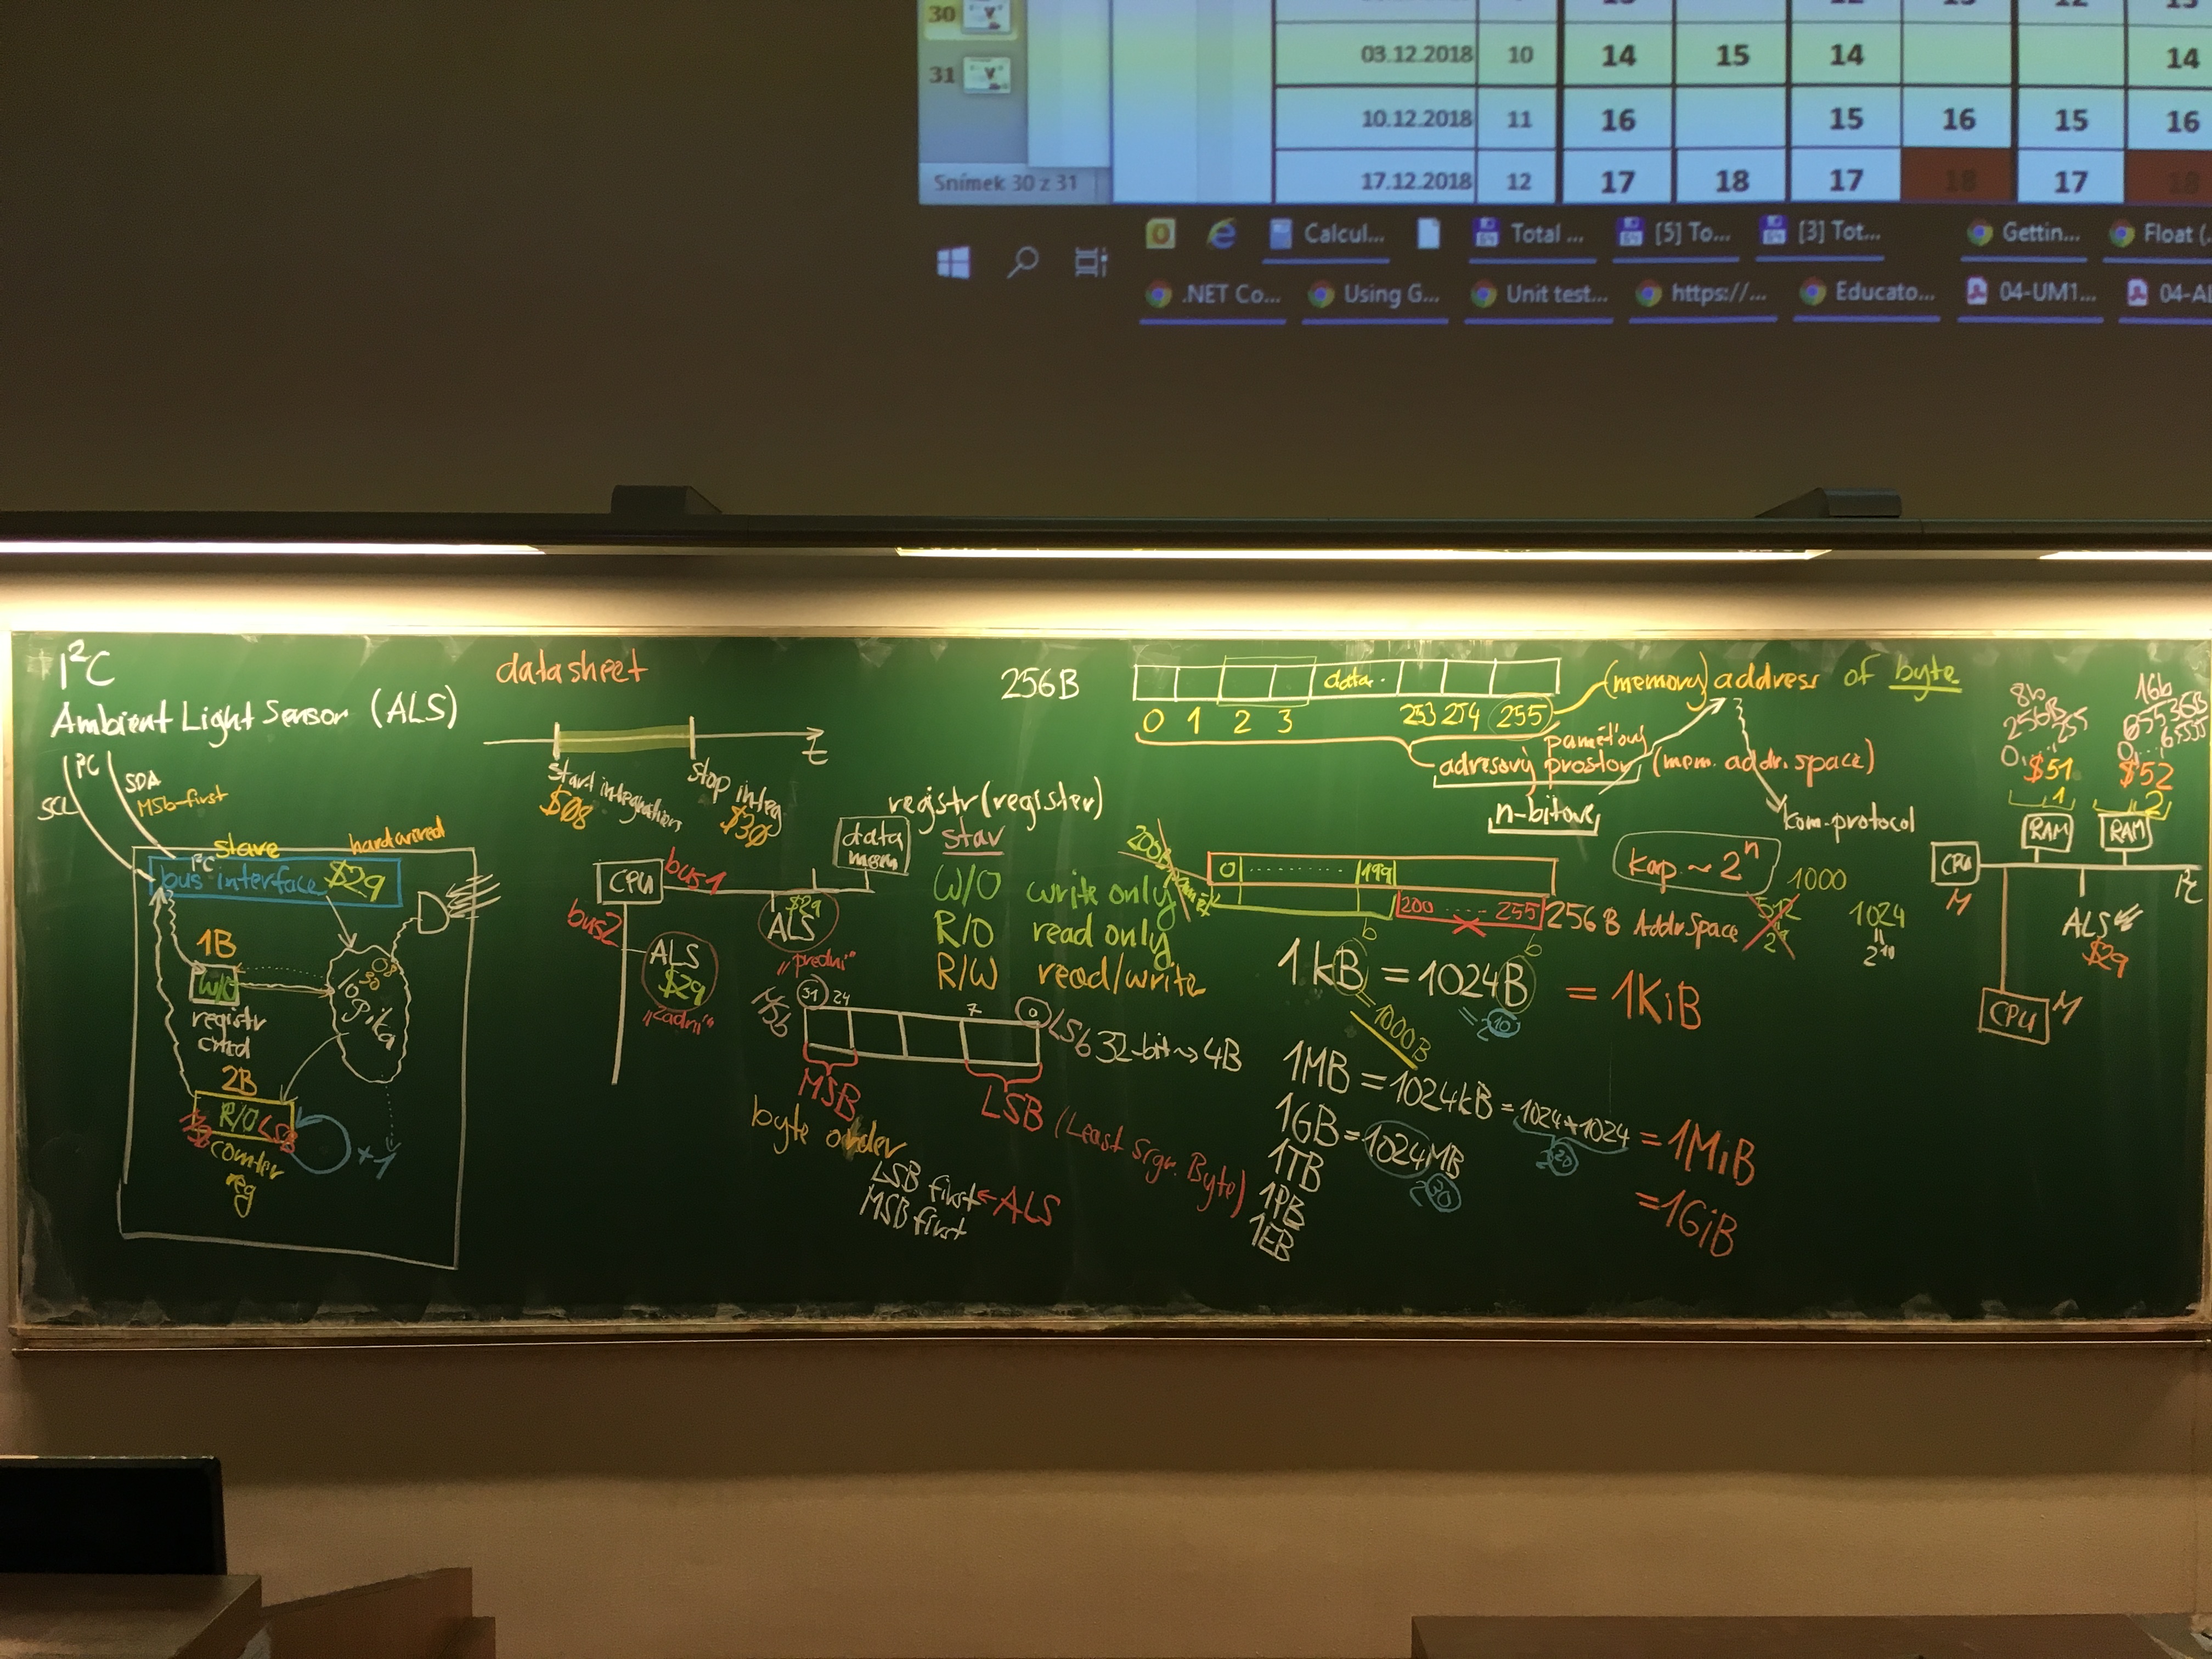 30
31
Snímek 30 z 31
03.12.2018 10 14 15 14 14
10.12.2018 11 16 15 16 15 16
17.12.2018 12 17 18 17 18 17 18
Calcul... Total ... [5] To... [3] Tot... Gettin... Float (.
.NET Co... Using G... Unit test... https://... Educato... 04-UM1... 04-Al
I²C
Ambient Light Sensor (ALS)
I²C
SCL
SDA
MSb-first
slave
hardwired
I²C
bus interface $29
1B
W/O
registr
cmd
2B
R/O LSB
counter
reg
+1
datasheet
t
start integration
$08
stop integ
$30
CPU
bus1
bus2
data
mem
$29
ALS
"přední"
ALS
$29
"zadní"
registr (register)
stav
W/O write only
R/O read only
R/W read/write
MSb 31 24 7 0 LSb 32-bit 4B
MSB
LSB (Least Sign. Byte)
byte order
LSB first ← ALS
MSB first
256B
data
0 1 2 3 253 254 255
(memory) address of byte
paměťový
adresový prostor (mem. addr. space)
n-bitové
kom. protocol
200B
0 199
200 255
256 B Addr Space
kap. ~ 2ⁿ
1000
512
2⁹
1024
=
2¹⁰
b b
1kB = 1024B = 1KiB
= 1000B
= 2¹⁰
1MB = 1024kB = 1024*1024 = 1MiB
2²⁰
1GB = 1024MB = 1GiB
2³⁰
1TB
1PB
1EB
8b
256B
0...255
$51
1
16b
65536B
0...65535
$52
2
RAM
RAM
CPU
M
I²C
ALS
$29
CPU M